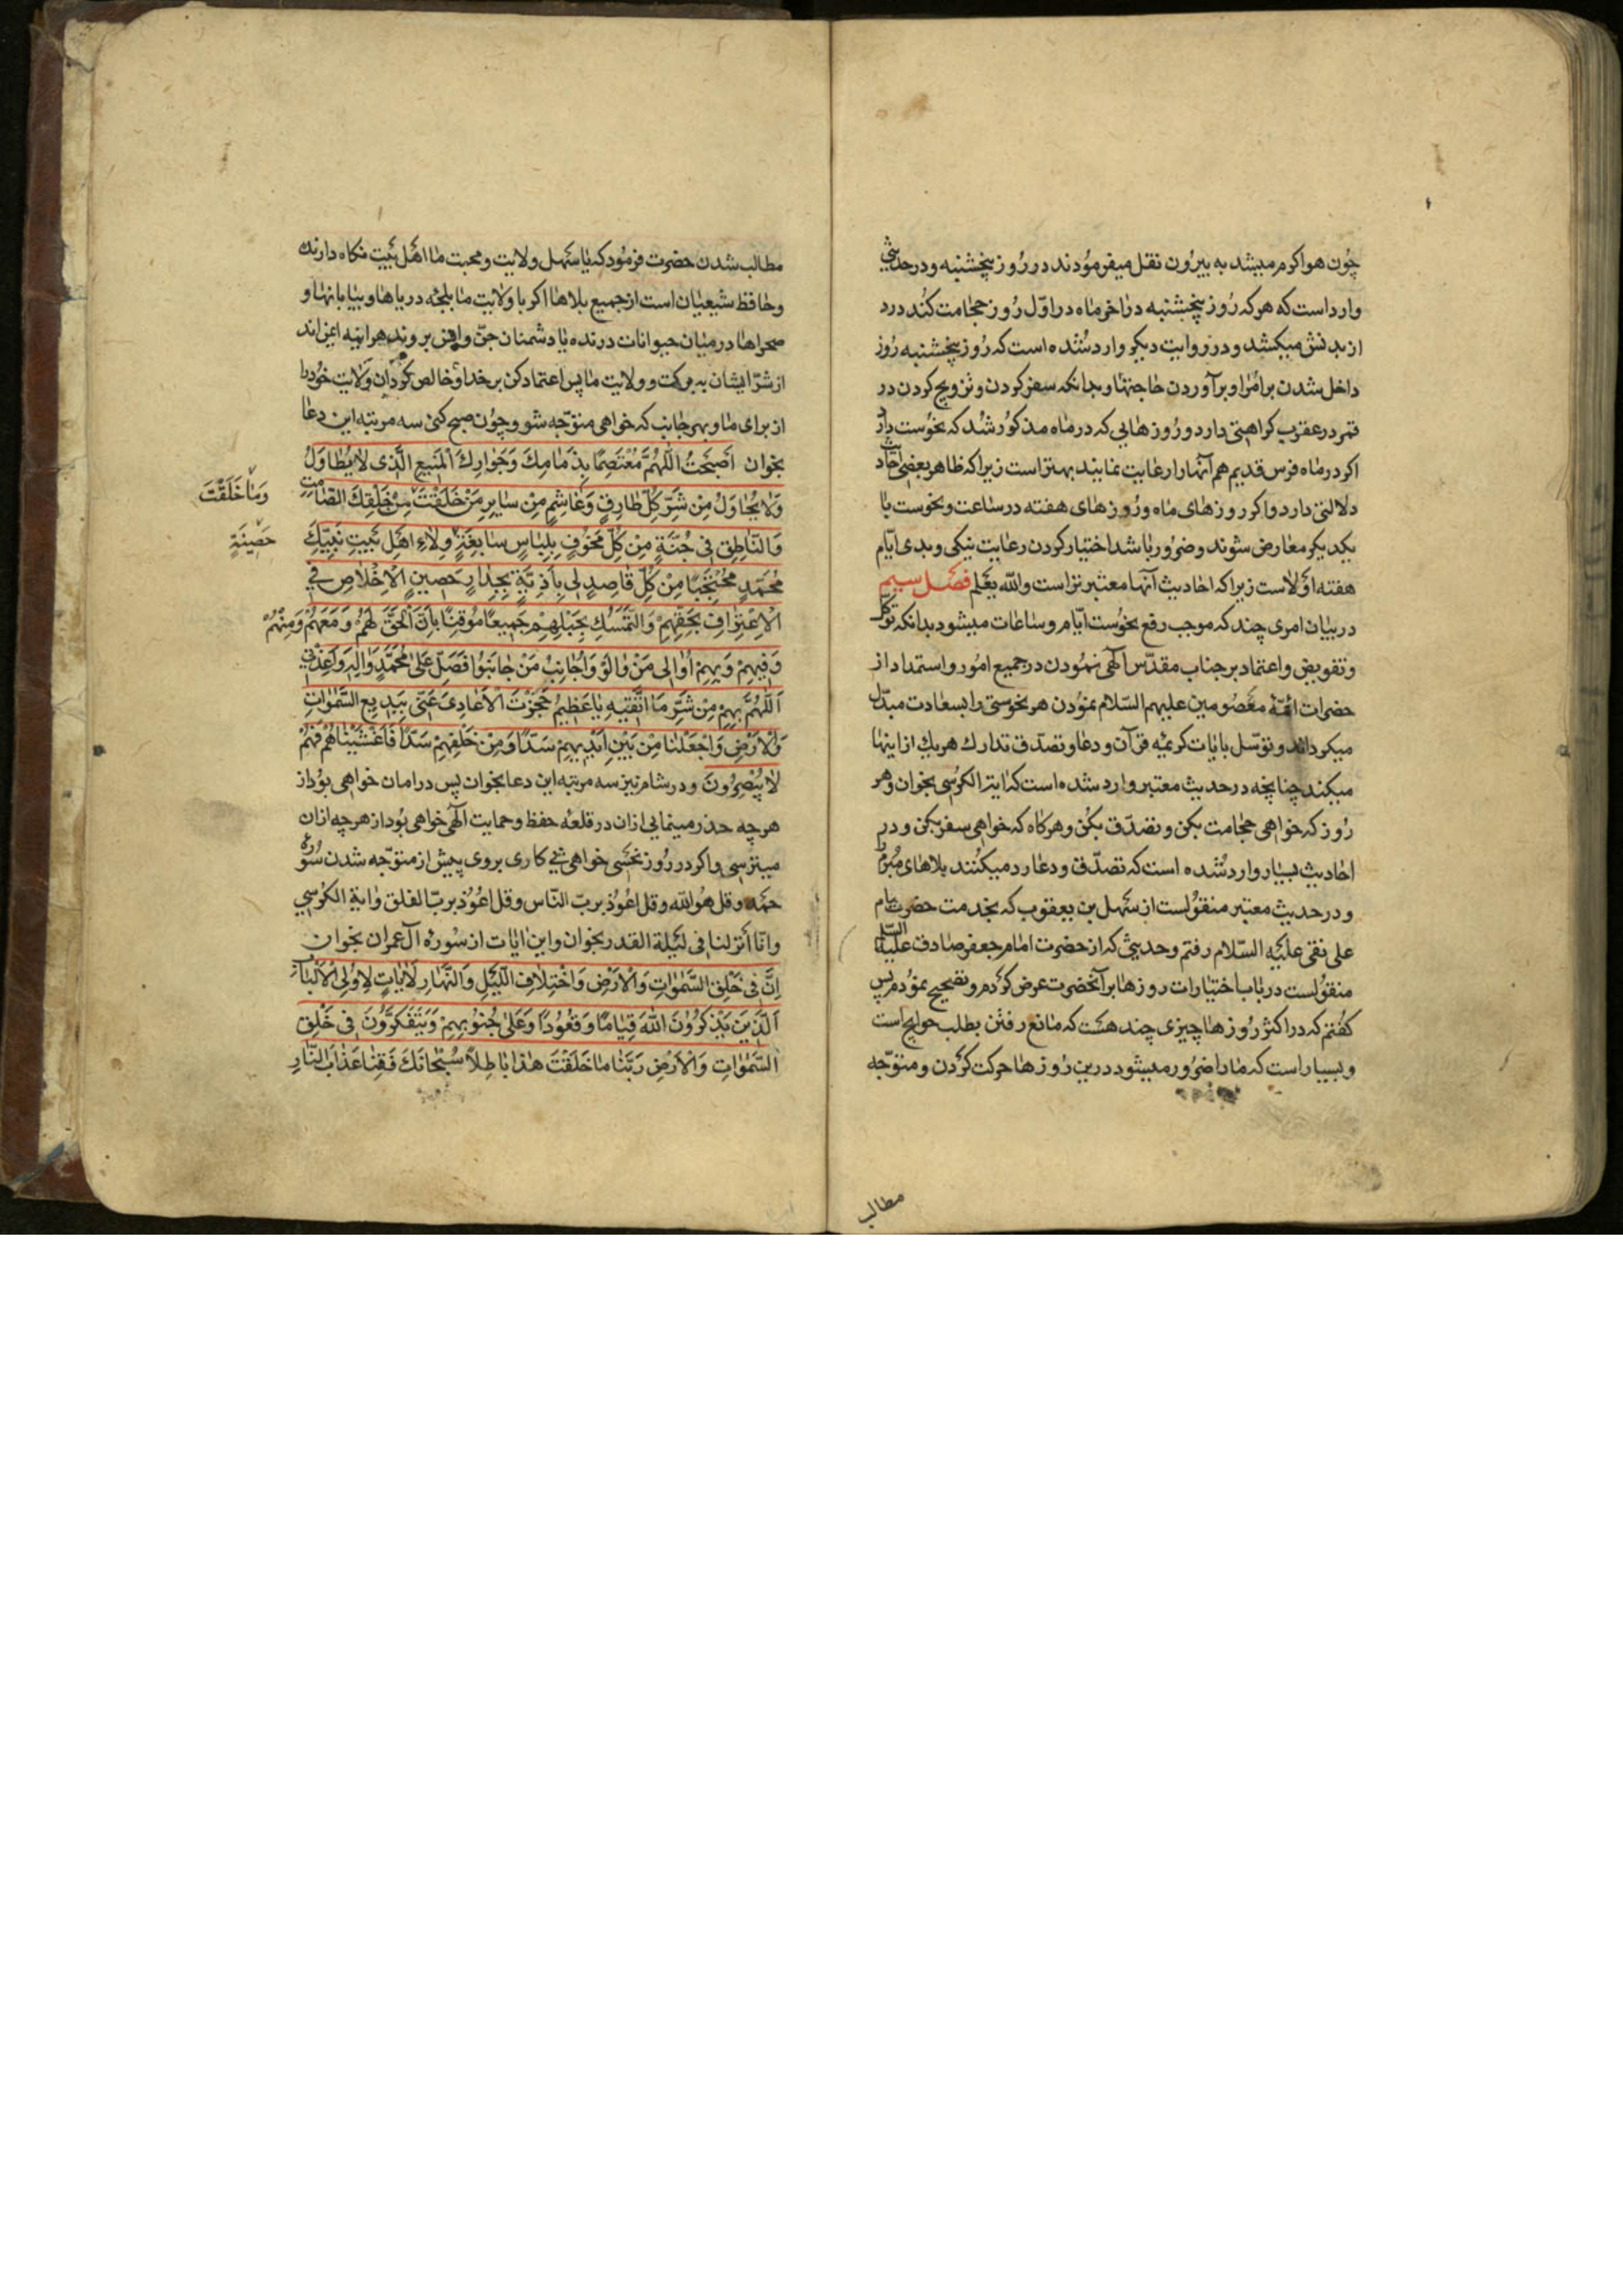 چون هوا گرم میشد به بیرون نقل میفرمودند در روز پنجشنبه و در حدیثی
وارد است که هر که روز پنجشنبه در اخر ماه در اوّل روز حجامت کند درد
از بدنش میکشد و در روایت دیگر وارد شده است که روز پنجشنبه روز
داخل شدن بر امرا و برآوردن حاجتها و بدانکه سفر کردن و تزویج کردن در
قمر در عقرب کراهتی دارد و روزهایی که در ماه مذکور شد که نحوست دارد
اکر در ماه فرس قدیم هم آنها را رعایت نمایند بهتر است زیرا که ظاهر بعضی احادیث
دلالتی دارد و اکر روزهای ماه و روزهای هفته در سعادت و نحوست با
یکدیکر معارض شوند و ضرور باشد اختیار کردن رعایت نیکی و بدی ایّام
هفته اولاست زیرا که احادیث آنها معتبرتر است والله یعلم فصل سیم
در بیان امری چند که موجب رفع نحوست ایّام و ساعات میشود بدانکه توکّل
و تفویض و اعتماد بر جناب مقدّس الهی نمودن در جمیع امور و استمداد از
حضرات ائمّهٔ معصومین علیهم السّلام نمودن هر نحوستی را بسعادت مبدّل
میکرداند و توسّل بایات کریمه قرآن و دعا و تصدّق تدارک هریک از اینها
میکند چنانچه در حدیث معتبر وارد شده است که ایة الکرسی بخوان و هر
روز که خواهی حجامت بکن و تصدّق بکن و هرکاه که خواهی سفر بکن و در
احادیث بسیار وارد شده است که تصدّق و دعا رد میکنند بلاهای مبرم را
و در حدیث معتبر منقولست از سهل بن یعقوب که بخدمت حضرت امام
علی نقی علیه السّلام رفتم و حدیثی که از حضرت امام جعفر صادق علیه السّلام
منقولست در باب اختیارات روزها بر آنحضرت عرض کردم و تصحیح نمودم پس
کفتم که در اکثر روزها چیزی چند هست که مانع رفتن بطلب حوایج است
و بسیار است که ما را ضرور میشود درین روزها حرکت کردن و متوجّه
مطالب
مطالب شدن حضرت فرمود که یا سهل ولایت و محبت ما اهل بیت نکاه دارنده
و حافظ شیعیان است از جمیع بلاها اکر با ولایت ما بلجّه دریاها و بیابانها و
صحراها در میان حیوانات درنده یا دشمنان جنّ و انس بروند هراینه ایمن اند
از شرّ ایشان به برکت ولایت ما پس اعتماد کن بر خدا و خالص کردان ولایت خود را
از برای ما و بهر جانب که خواهی متوجّه شو و چون صبح کنی سه مرتبه این دعا
بخوان اَصْبَحْتُ اَللّهُمَّ مُعْتَصِمًا بِذِمَامِكَ وَجَوَارِكَ الْمَنِيعِ الَّذِی لَا يُطَاوَلُ
وَلَا يُحَاوَلُ مِنْ شَرِّ كُلِّ طَارِقٍ وَغَاشِمٍ مِنْ سَايِرِ مَنْ خَلَقْتَ مِنْ خَلْقِكَ الصَّامِتِ
وَمَا خَلَقْتَ
وَالنَّاطِقِ فِی جُنَّةٍ مِنْ كُلِّ مَخُوفٍ بِلِبَاسٍ سَابِغَةٍ وِلَاءِ اَهْلِ بَيْتِ نَبِيِّكَ
حَصِينَةٍ
مُحَمَّدٍ مُحْتَجِبًا مِنْ كُلِّ قَاصِدٍ لِی بِاَذِيَّةٍ بِجِدَارٍ حَصِينِ الْاِخْلَاصِ فِی
الْاِعْتِرَافِ بِحَقِّهِمْ وَالتَّمَسُّكِ بِحَبْلِهِمْ جَمِيعًا مُوقِنًا بِاَنَّ الْحَقَّ لَهُمْ وَمَعَهُمْ وَمِنْهُمْ
وَفِيهِمْ وَبِهِمْ اُوَالِی مَنْ وَالَوْا وَاُجَانِبُ مَنْ جَانَبُوا فَصَلِّ عَلٰى مُحَمَّدٍ وَالِهِ وَاَعِذْنِی
اَللّهُمَّ بِهِمْ مِنْ شَرِّ مَا اَتَّقِيهِ يَا عَظِيمُ حَجَزْتَ الْاَعَادِیَ عَنِّی بِبَدِيعِ السَّمٰوَاتِ
وَالْاَرْضِ وَاجْعَلْنَا مِنْ بَيْنِ اَيْدِيهِمْ سَدًّا وَمِنْ خَلْفِهِمْ سَدًّا فَاَغْشَيْنَاهُمْ فَهُمْ
لَا يُبْصِرُونَ و در شام نیز سه مرتبه این دعا بخوان پس در امان خواهی بود از
هرچه حذر مینمایی ازان در قلعهٔ حفظ و حمایت الهی خواهی بود از هرچه ازان
میترسی و اکر در روز نحسی خواهی پی کاری بروی پیش از متوجّه شدن سوره
حمد و قل هو الله و قل اعوذ بربّ النّاس و قل اعوذ بربّ الفلق و ایة الکرسی
و انّا انزلنا فی لیلة القدر بخوان و این ایات از سوره آل عمران بخوان
اِنَّ فِی خَلْقِ السَّمٰوَاتِ وَالْاَرْضِ وَاخْتِلَافِ اللَّيْلِ وَالنَّهَارِ لَاٰيَاتٍ لِاُولِی الْاَلْبَابِ
اَلَّذِينَ يَذْكُرُونَ اللّٰهَ قِيَامًا وَقُعُودًا وَعَلٰى جُنُوبِهِمْ وَيَتَفَكَّرُونَ فِی خَلْقِ
السَّمٰوَاتِ وَالْاَرْضِ رَبَّنَا مَا خَلَقْتَ هٰذَا بَاطِلًا سُبْحَانَكَ فَقِنَا عَذَابَ النَّارِ